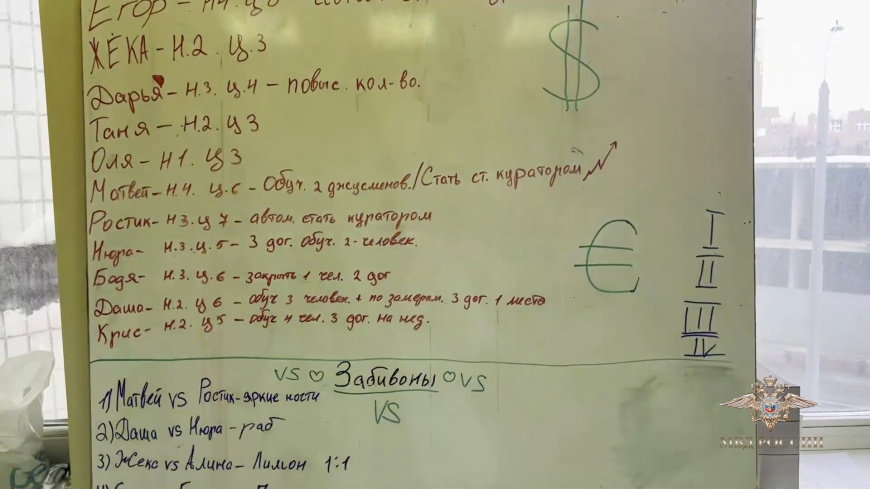 Егор - Н4. Ц8
ЖЕКА - Н.2. Ц.3
Дарья - Н.3. Ц.4 - повыс. кол-во.
Таня - Н.2. Ц3
Оля - Н1. Ц3
Матвей - Н.4. Ц.6 - Обуч. 2 джусменов./Стать ст. куратором
Ростик - Н3. Ц7 - автом. стать куратором
Нюра - Н.3. Ц.5 - 3 дог. обуч. 2-человек.
Бодя - Н.3. Ц.6 - закрыть 1 чел. 2 дог
Даша - Н.2. Ц6 - обуч 3 человек. + по замерам. 3 дог. 1 место
Крис - Н.2. Ц5 - обуч 4 чел. 3 дог. на нед.
$
€
I
II
III
IV
VS ♡ Забивоны ♡ VS
VS
1) Матвей VS Ростик - яркие ногти
2) Даша vs Нюра - раб
3) Жека vs Алина - Лимон 1:1
МВД РОССИИ